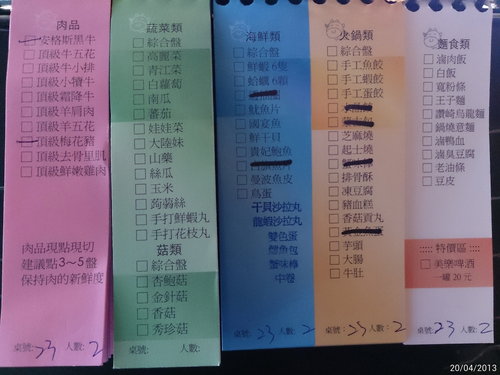 肉品
安格斯黑牛
頂級牛五花
頂級牛小排
頂級小犢牛
頂級霜降牛
頂級羊肩肉
頂級羊五花
頂級梅花豬
頂級去骨里肌
頂級鮮嫩雞肉
肉品現點現切
建議點3~5盤
保持肉的新鮮度
桌號: 23 人數: 2
蔬菜類
綜合盤
高麗菜
青江菜
白蘿蔔
南瓜
蕃茄
娃娃菜
大陸妹
山藥
絲瓜
玉米
蒟蒻絲
手打鮮蝦丸
手打花枝丸
菇類
綜合盤
杏鮑菇
金針菇
香菇
秀珍菇
桌號: 人數:
海鮮類
綜合盤
鮮蝦6隻
蛤蠣6顆
魚魚片
國宴魚
鮮干貝
貴妃鮑魚
曼波魚皮
鳥蛋
干貝沙拉丸
龍蝦沙拉丸
雙色蛋
鱈魚包
蟹味棒
中卷
桌號: 23 人數: 2
火鍋類
綜合盤
手工魚餃
手工蝦餃
手工蛋餃
芝麻燒
起士燒
排骨酥
凍豆腐
豬血糕
香菇貢丸
芋頭
大腸
牛肚
桌號: 23 人數: 2
麵食類
滷肉飯
白飯
寬粉條
王子麵
讚崎烏龍麵
鍋燒意麵
滷鴨血
滷臭豆腐
老油條
豆皮
::::: 特價區 :::::
美樂啤酒
一罐20元
桌號: 23 人數: 2
20/04/2013